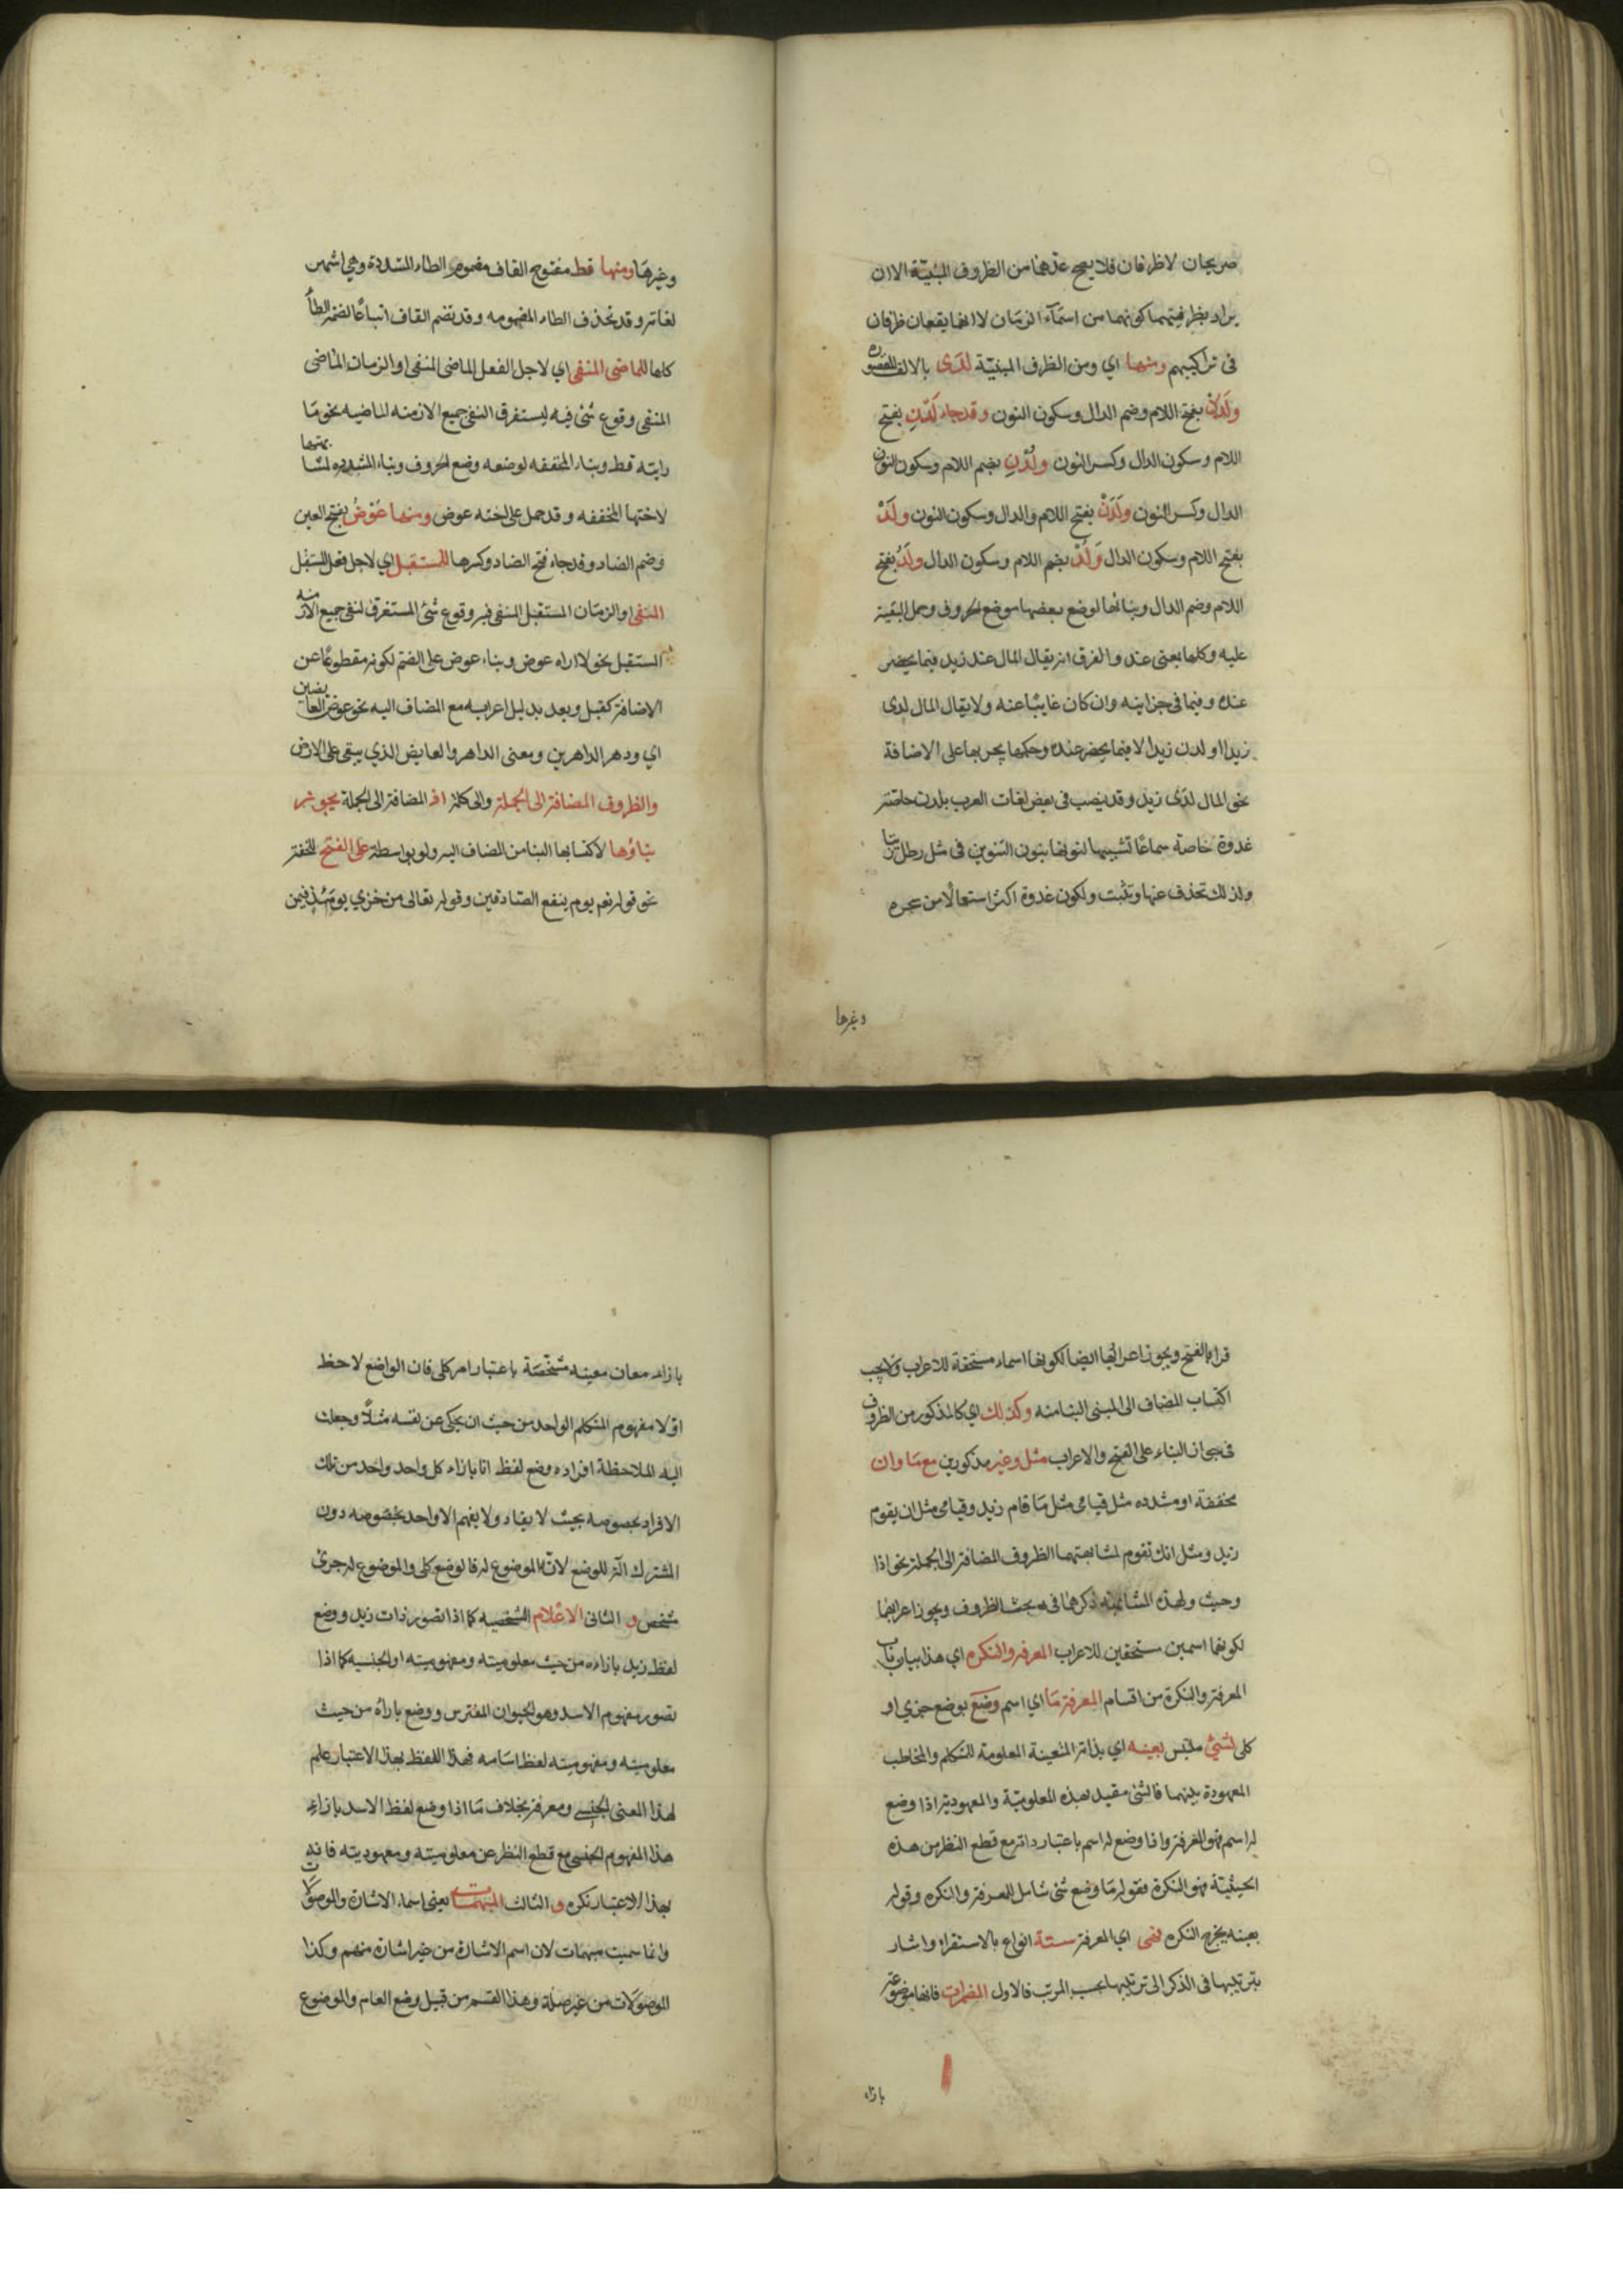 صريحان لا ظرفان فلا يصح عدهما من الظروف المبنيّة الا ان
يراد بظرفيتهما كونهما من اسمآء الزمان لا انهما يقعان ظرفان
فى تراكيبهم ومنها اي ومن الظرف المبنيّة لدَى بالالف المقصوره
ولَدُنْ بفتح اللام وضم الدال وسكون النون وقد جاء لَدْنِ بفتح
اللام وسكون الدال وكسر النون ولُدْنِ بضم اللام وسكون النون
الدال وكسر النون ولَدَنْ بفتح اللام والدال وسكون النون ولَدْ
بفتح اللام وسكون الدال وَلُدْ بضم اللام وسكون الدال ولَدُ بفتح
اللام وضم الدال وبنائها لوضع بعضها موضع الحروف وحمل البقية
عليه وكلها بمعنى عند والفرق انه يقال المال عند زيد فيما يحضر
عنده وفيما فى خزاينه وان كان غايبًا عنه ولا يقال المال لدى
زيد او لدن زيد الا فيما يحضر عنده وحكمها يجر بها على الاضافة
نحو المال لدَى زيد وقد ينصب فى بعض لغات العرب بلدن خاصّته
غدوة خاصة سماعًا تشبيها لنونها بنون التنوين فى مثل رطل زيتا
ولذلك تحذف عنها وتثبت ولكون غدوة اكثر استعمالًا من سحره
وغيرها
وغيرهَا ومنها قط مفتوح القاف مضموم الطاء المشددة وهي اشهر
لغاته وقد تحذف الطاء المضمومه وقد تضم القاف اتباعًا لضمه الطاء
كلها للماضى المنفى اي لاجل الفعل الماضى المنفى او الزمان الماضى
المنفى وقوع شئ فيه ليستغرق النفى جميع الازمنه الماضيه نحو مَا
رايته قط وبناء المخففه لوضعه وضع الحروف وبناء المشدده لمشابهتها
لاختها المخففه وقد حمل على اخته عوض ومنها عَوْضُ بفتح العين
وضم الضاد وقد جاء فتح الضاد وكسرها للمستقبل اي لاجل فعل المستقبل
المنفى او الزمَان المستقبل المنفى فيه وقوع شئ المستغرق لنفى جميع الازمنه
المستقبل نحو لا اراه عوض وبناء عوض على الضم لكونه مقطوعًا عن
الاضافة كقبل وبعد بدليل اعرابه مع المضاف اليه نحو عوض العايضين
اي ودهر الداهرين ومعنى الداهر والعايض الذي يبقى على الارض
والظروف المضافة الى الجملة والى كلمة اذ المضافة الى الجملة يجوز
بناؤها لاكتسابها البنا من المضاف اليه ولو بواسطة على الفتح للخفة
نحو قوله تعم يوم ينفع الصّادقين وقوله تعالى من خزي يومَئذ فيمن
قرا بالفتح ويجوز اعرابها ايضا لكونها اسماء مستحقة للاعراب ولا يجب
اكتساب المضاف الى المبنى البنا منه وكذلك اي كالمذكور من الظروف
فى جواز البناء على الفتح والاعراب مثل وغير مذكورين مع مَا وان
مخففة او مشدده مثل قيامى مثل مَا قام زيد وقيامى مثل ان يقوم
زيد ومثل انك تقوم لمشابهتهما الظروف المضافة الى الجملة نحو اذا
وحيث ولهذه المشابهة ذكرها فى بحث الظروف ويجوز اعرابهما
لكونهما اسمين مستحقين للاعراب المعرفه والنكره اي هذا بيان باب
المعرفة والنكرة من اقسام المعرفة مَا اي اسم وضع بوضع جزي او
كلى لشئ ملتبس بعينه اي بذاته المتعينة المعلومة للمتكلم والمخاطب
المعهودة بينهما فالشئ مقيد بهذه المعلوميّة والمعهودية اذا وضع
له اسم فهو المعرفة واذا وضع له اسم باعتبار ذاته مع قطع النظر من هذه
الحيثيّة فهو النكرة فقوله مَا وضع شئ شامل للمعرفة والنكره وقوله
بعينه يخرج النكره فهى اي المعرفة ستة انواع بالاستقراء واشار
بترتيبها فى الذكر الى ترتيبها بحسب المرتب فالاول المضمرات فانها موضوعة
بازاء
بازاء معان معينه مشخّصَة باعتبار امر كلى فان الواضع لاحظ
اوّلا مفهوم المتكلم الواحد من حيث ان يحكى عن نفسه مثلًا وجعلت
اليه الملاحظة افراده وضع لفظ انا بازاء كل واحد واحد من تلك
الافراد بخصوصه بحيث لا يفاد ولا يفهم الا واحد بخصوصه دون
المشترك الّة للوضع لانّ الموضوع له فالوضع كلى والموضوع له جزئ
شخص و الثانى الاعْلام الشخصيه كما اذا تصور ذات زيد ووضع
لفظ زيد بازاءه من حيث معلوميته ومفهوميته او الجنسيه كما اذا
تصور مفهوم الاسد وهو الحيوان المفترس ووضع بازاه من حيث
معلوميته ومفهوميته لفظ اسَامه فهذا اللفظ بهذا الاعتبار علم
لهذا المعنى الجنسي ومعرفة بخلاف مَا اذا وضع لفظ الاسد بازاءِ
هذا المفهوم الجنسي مع قطع النظر عن معلوميته ومعهوديته فانه
بهذا الاعتبار نكره و الثالث المبهمات يعنى اسماء الاشارة والموصولات
وانما سميت مبهمات لان اسم الاشارة من غير اشارة مبهم وكذا
الموصولات من غير صلة وهذا القسم من قبيل وضع العام والموضوع